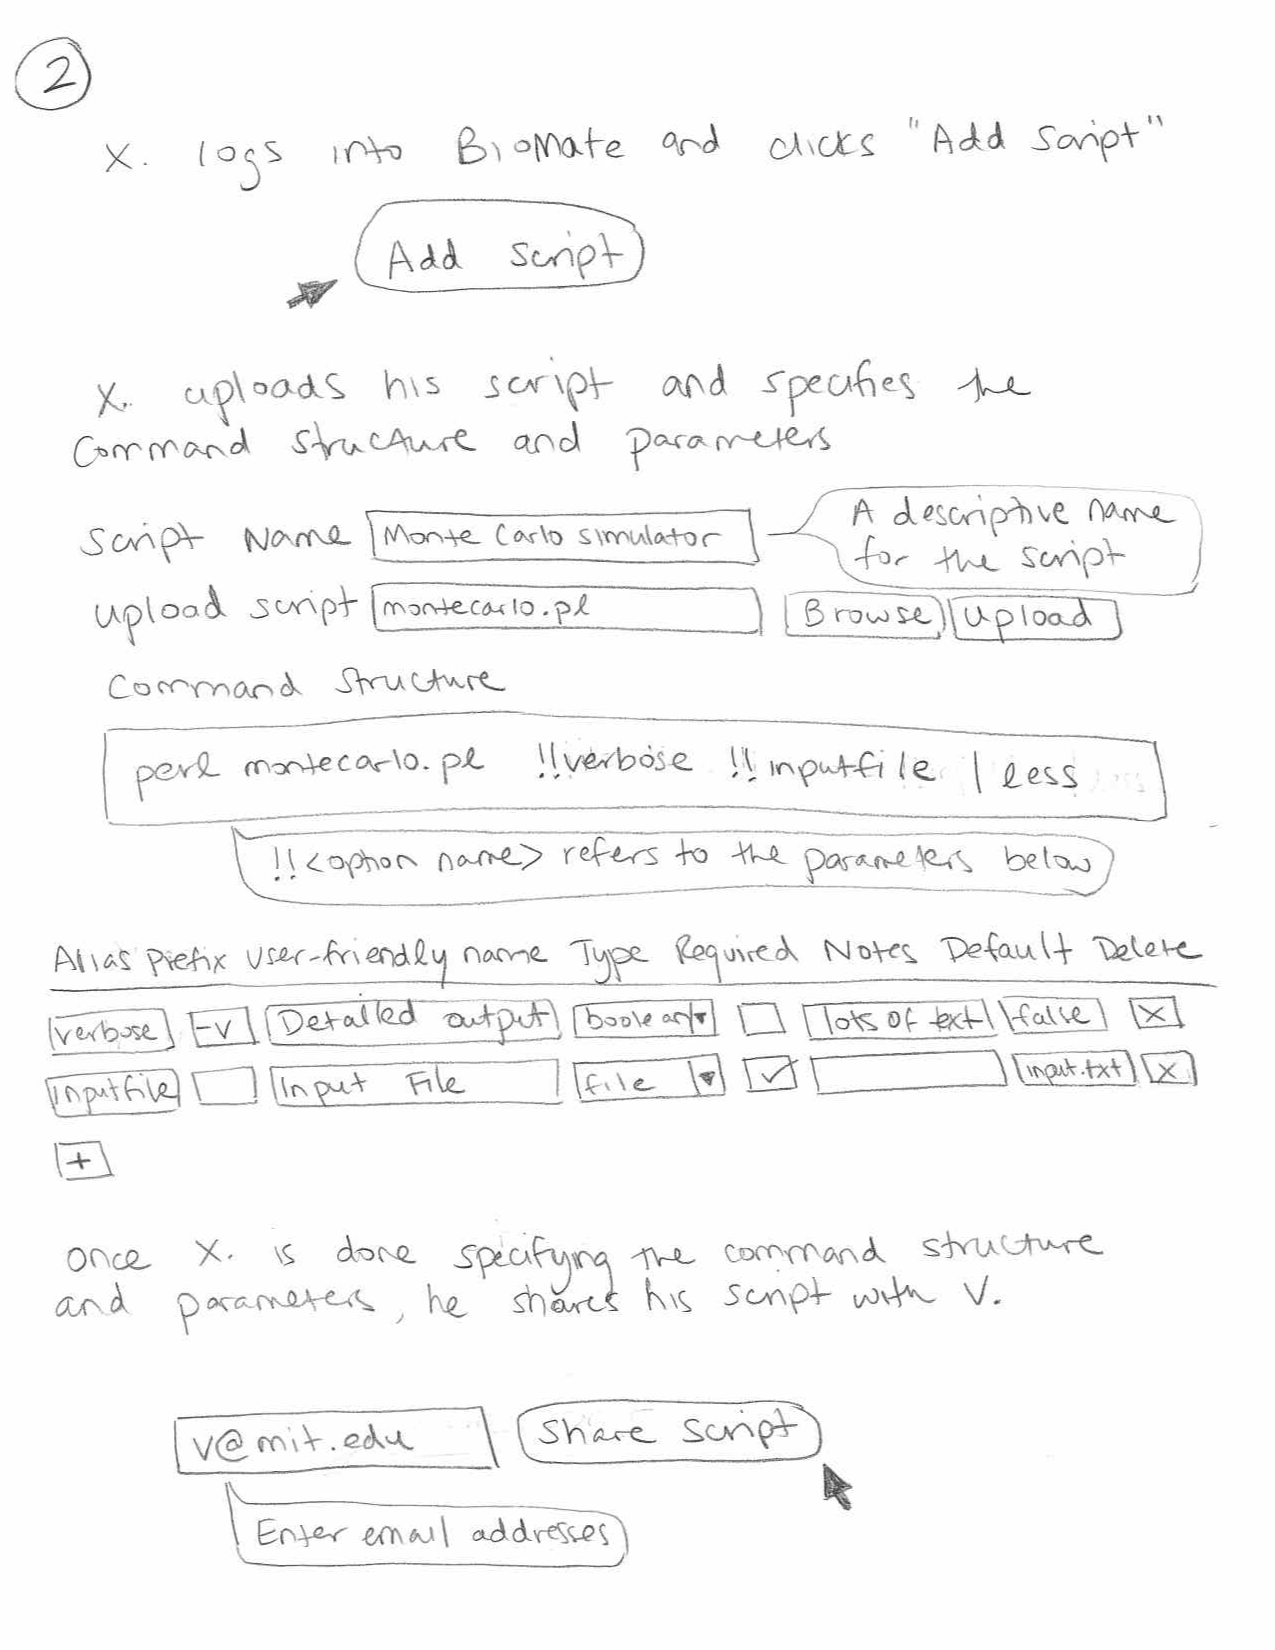 2
X. logs into BioMate and clicks "Add Script"
Add Script
X. uploads his script and specifies the
command structure and parameters
Script Name Monte Carlo simulator
A descriptive name
for the script
upload script montecarlo.pl Browse Upload
Command Structure
perl montecarlo.pl !!verbose !!inputfile | less
!!<option name> refers to the parameters below
Alias Prefix User-friendly name Type Required Notes Default Delete
verbose -v Detailed output boolean lots of text false X
inputfile Input File file ✓ input.txt X
+
once X. is done specifying the command structure
and parameters, he shares his script with V.
v@mit.edu Share Script
Enter email addresses